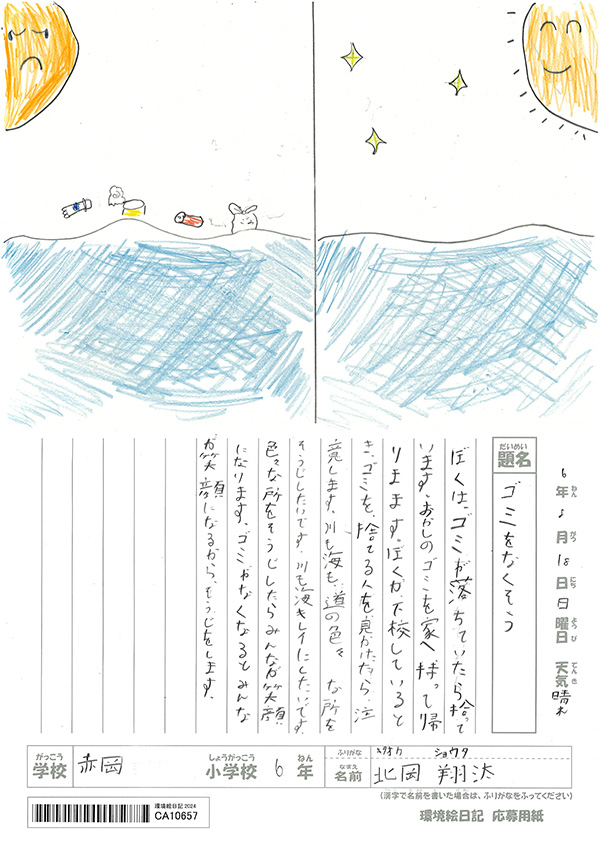 6年8月18日日曜日 天気晴れ
ねん がつ にち ようび てんき
だいめい
題名
ゴミをなくそう
ぼくは、ゴミが落ちていたら拾って
います。おかしのゴミを家へ持って帰
ります。ぼくが、下校していると
き、ゴミを、捨てる人を見かけたら、注
意します。川も海も、道の色々な所を
そうじしたいです。川も海キレイにしたいです。
色々な所をそうじしたらみんなが笑顔
になります。ゴミがなくなるとみんな
が笑顔になるから、そうじをします。
がっこう
学校
赤岡
しょうがっこう
小学校
6
ねん
年
ふりがな
キタオカ ショウタ
なまえ
名前
北岡 翔汰
(漢字で名前を書いた場合は、ふりがなをふってください)
環境絵日記2024
CA10657
環境絵日記 応募用紙